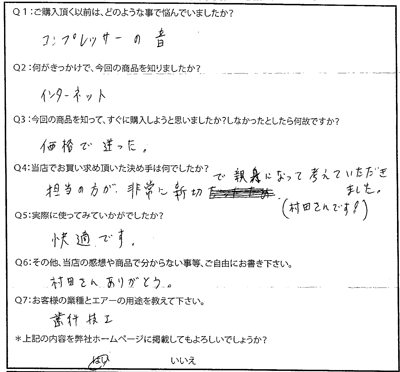 Q1:ご購入頂く以前は、どのような事で悩んでいましたか?
コンプレッサーの音
Q2:何がきっかけで、今回の商品を知りましたか?
インターネット
Q3:今回の商品を知って、すぐに購入しようと思いましたか?しなかったとしたら何故ですか?
価格で迷った。
Q4:当店でお買い求め頂いた決め手は何でしたか?
担当の方が、非常に新切で親身になって考えていただき
ました。
(村田さんです?)
Q5:実際に使ってみていかがでしたか?
快適です。
Q6:その他、当店の感想や商品で分からない事等、ご自由にお書き下さい。
村田さんありがとう。
Q7:お客様の業種とエアーの用途を教えて下さい。
歯科技工
*上記の内容を弊社ホームページに掲載してもよろしいでしょうか?
はい いいえ